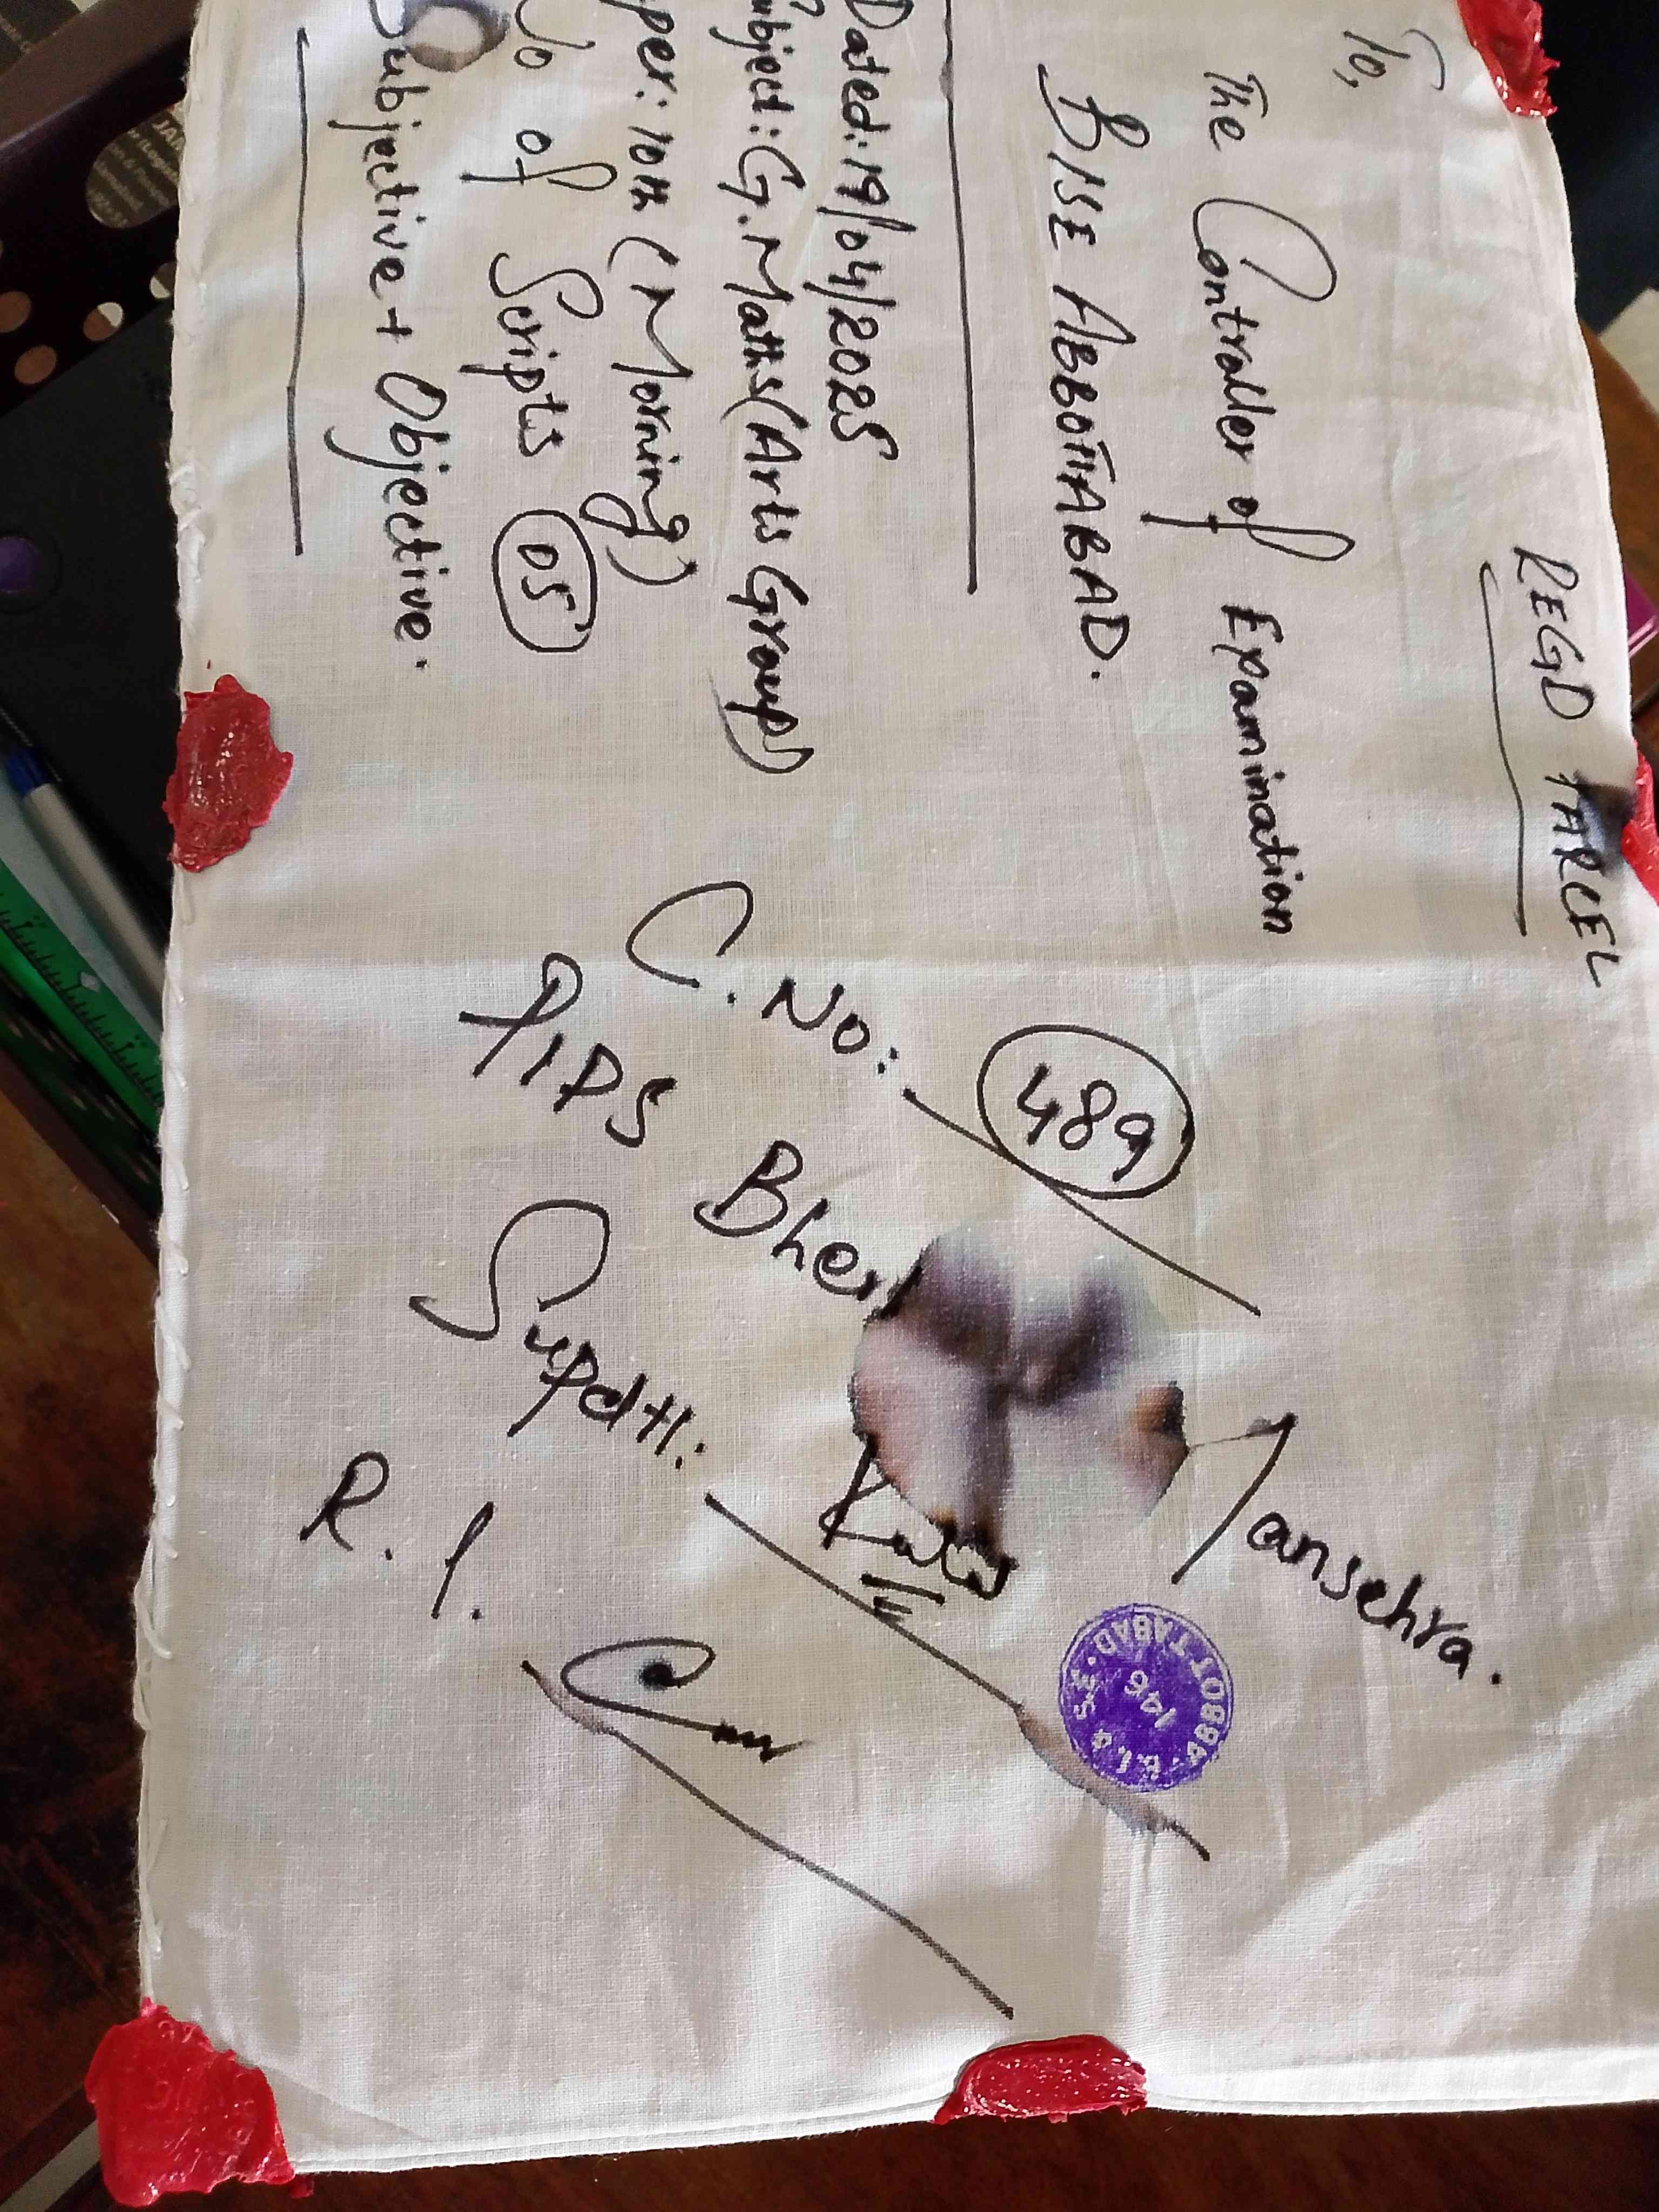 REGD PARCEL
To,
The Controller of Examination
BISE ABBOTTABAD.
Dated: 19/04/2025
Subject: G.Maths (Arts Group)
Paper: 10th (Morning)
No of Scripts 05
Subjective + Objective.
C. No: 489
Mansehra.
Supdtt:
R. I.
B.I.S.E. ABBOTTABAD.
146